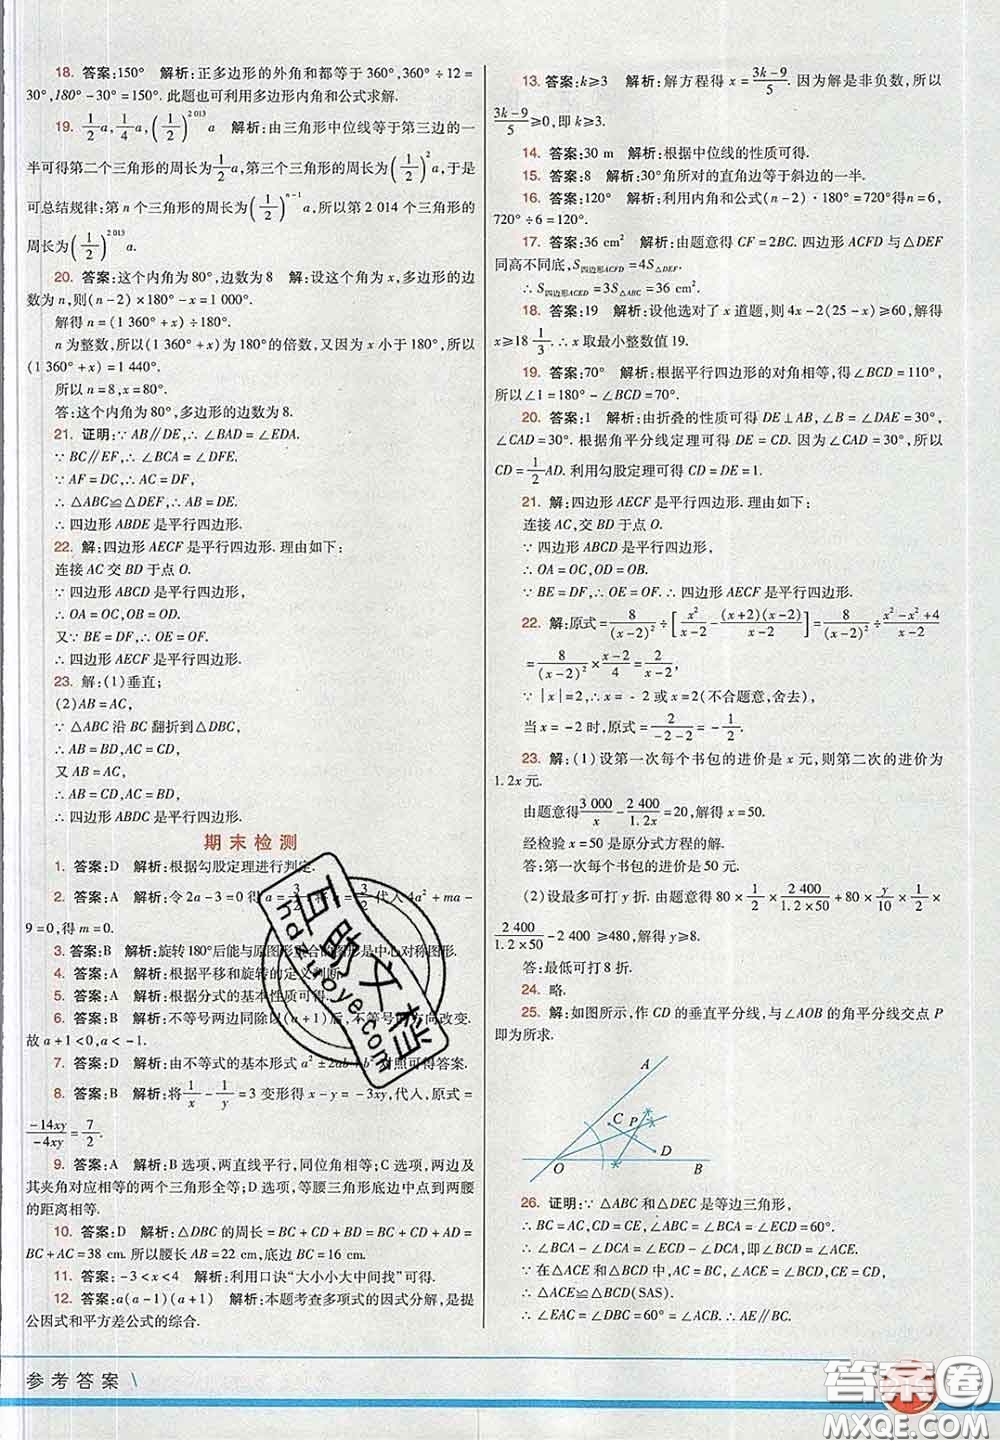 18. 答案:150°　解析:正多边形的外角和都等于360°,360°÷12=
30°,180°-30°=150°. 此题也可利用多边形内角和公式求解.
19. 1/2 a, 1/4 a, (1/2)^2 013 a　解析:由三角形中位线等于第三边的一
半可得第二个三角形的周长为1/2 a,第三个三角形的周长为(1/2)^2 a,于是
可总结规律:第 n 个三角形的周长为(1/2)^(n-1) a,所以第 2 014 个三角形的
周长为(1/2)^2 013 a.
20. 答案:这个内角为80°,边数为8　解:设这个角为 x,多边形的边
数为 n,则(n-2)×180°-x=1 000°.
解得 n=(1 360°+x)÷180°.
n 为整数,所以(1 360°+x)为180°的倍数,又因为 x 小于180°,所以
(1 360°+x)=1 440°.
所以 n=8,x=80°.
答:这个内角为80°,多边形的边数为8.
21. 证明:∵ AB∥DE,∴ ∠BAD=∠EDA.
∵ BC∥EF,∴ ∠BCA=∠DFE.
∵ AF=DC,∴ AC=DF.
∴ △ABC≌△DEF,∴ AB=DE.
∴ 四边形 ABDE 是平行四边形.
22. 解:四边形 AECF 是平行四边形.理由如下:
连接 AC 交 BD 于点 O.
∵ 四边形 ABCD 是平行四边形,
∴ OA=OC,OB=OD.
又∵ BE=DF,∴ OE=OF.
∴ 四边形 AECF 是平行四边形.
23. 解:(1)垂直;
(2)AB=AC,
∵ △ABC 沿 BC 翻折到△DBC,
∴ AB=BD,AC=CD,
又 AB=AC,
∴ AB=BD=AC=CD,
∴ 四边形 ABDC 是平行四边形.
期末检测
1. 答案:D　解析:根据勾股定理进行判定.
2. 答案:A　解析:令2a-3=0得 a=3/2,将 3/2 代入4a²+ma-
9=0,得 m=0.
3. 答案:B　解析:旋转180°后能与原图形重合的图形是中心对称图形.
4. 答案:A　解析:根据平移和旋转的定义判断.
5. 答案:A　解析:根据分式的基本性质可得.
6. 答案:B　解析:不等号两边同除以(a+1)后,不等号的方向改变.
故 a+1<0,a<-1.
7. 答案:D　解析:由不等式的基本形式 a²±2ab+b²对照可得答案.
8. 答案:B　解析:将 1/x - 1/y =3 变形得 x-y=-3xy,代入,原式=
-14xy/-4xy = 7/2.
9. 答案:A　解析:B 选项,两直线平行,同位角相等;C 选项,两边及
其夹角对应相等的两个三角形全等;D 选项,等腰三角形底边中点到两腰
的距离相等.
10. 答案:D　解析:△DBC 的周长=BC+CD+BD=BC+CD+AD=
BC+AC=38 cm. 所以腰长 AB=22 cm,底边 BC=16 cm.
11. 答案:-3<x<4　解析:利用口诀“大小小大中间找”可得.
12. 答案:a(a-1)(a+1)　解析:本题考查多项式的因式分解,是提
公因式和平方差公式的综合.
13. 答案:k≥3　解析:解方程得 x=(3k-9)/5. 因为解是非负数,所以
(3k-9)/5≥0,即 k≥3.
14. 答案:30 m　解析:根据中位线的性质可得.
15. 答案:8　解析:30°角所对的直角边等于斜边的一半.
16. 答案:120°　解析:利用内角和公式(n-2)·180°=720°得 n=6,
720°÷6=120°.
17. 答案:36 cm²　解析:由题意得 CF=2BC. 四边形 ACFD 与△DEF
同高不同底,S四边形ACFD=4S△DEF.
∴ S四边形ACED=3S△ABC=36 cm².
18. 答案:19　解析:设他选对了 x 道题,则4x-2(25-x)≥60,解得
x≥18 1/3. ∴ x 取最小整数值19.
19. 答案:70°　解析:根据平行四边形的对角相等,得∠BCD=110°,
所以∠1=180°-∠BCD=70°.
20. 答案:1　解析:由折叠的性质可得 DE⊥AB,∠B=∠DAE=30°,
∠CAD=30°. 根据角平分线定理可得 DE=CD. 因为∠CAD=30°,所以
CD=1/2 AD. 利用勾股定理可得 CD=DE=1.
21. 解:四边形 AECF 是平行四边形. 理由如下:
连接 AC,交 BD 于点 O.
∵ 四边形 ABCD 是平行四边形,
∴ OA=OC,OD=OB.
∵ BE=DF,∴ OE=OF,∴ 四边形 AECF 是平行四边形.
22. 解:原式=8/(x-2)²÷[x²/(x-2)-(x+2)(x-2)/(x-2)]=8/(x-2)²÷(x²-x²+4)/(x-2)
=8/(x-2)²×(x-2)/4=2/(x-2),
∵ |x|=2,∴ x=-2 或 x=2(不合题意,舍去),
当 x=-2时,原式=2/(-2-2)=-1/2.
23. 解:(1)设第一次每个书包的进价是 x 元,则第二次的进价为
1.2x 元.
由题意得3 000/x-2 400/1.2x=20,解得 x=50.
经检验 x=50是原分式方程的解.
答:第一次每个书包的进价是 50 元.
(2)设最多可打 y 折. 由题意得 80×1/2×2 400/(1.2×50)+80×y/10×1/2×
2 400/(1.2×50)-2 400≥480,解得 y≥8.
答:最低可打 8 折.
24. 略.
25. 解:如图所示,作 CD 的垂直平分线,与∠AOB 的角平分线交点 P
即为所求.
A
C P
D
O B
26. 证明:∵ △ABC 和△DEC 是等边三角形,
∴ BC=AC,CD=CE,∠BCA=∠ECD=60°.
∴ ∠BCA-∠DCA=∠ECD-∠DCA,即∠BCD=∠ACE.
∵ 在△ACE 和△BCD 中,AC=BC,∠ACE=∠BCD,CE=CD,
∴ △ACE≌△BCD(SAS).
∴ ∠EAC=∠DBC=60°=∠ACB. ∴ AE∥BC.
互助文档
hdzuoye.com
参考答案
答案圈
MXQE.COM